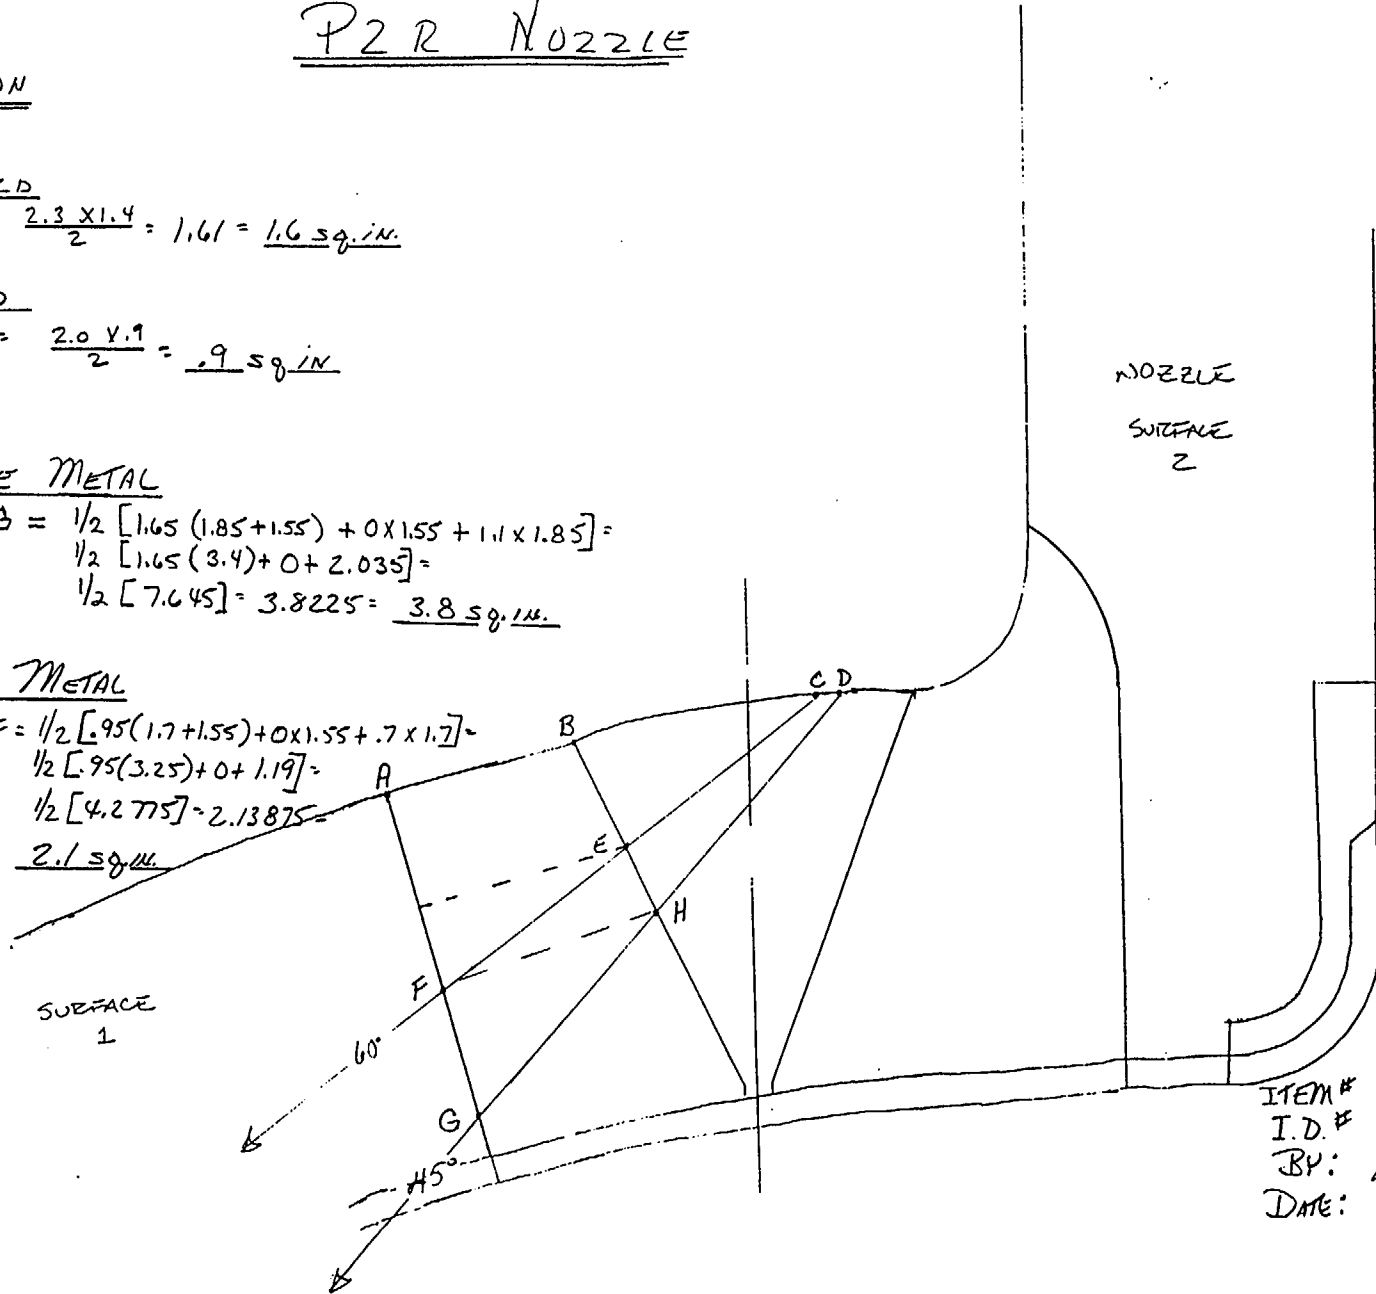 PZR NOZZLE
ON
LD
2.3 X1.4
2
= 1.61 = 1.6 sq.in.
D
= 2.0 X.9
2
= .9 sq in
E METAL
B = 1/2 [1.65 (1.85+1.55) + 0X1.55 + 1.1 x 1.85] =
1/2 [1.65 (3.4)+ 0+ 2.035] =
1/2 [7.645] = 3.8225 = 3.8 sq.in.
METAL
= 1/2 [.95(1.7+1.55)+0x1.55+.7 x1.7] =
1/2 [.95(3.25)+0+1.19] =
1/2 [4.2775] = 2.13875 =
2.1 sq.in.
NOZZLE
SURFACE
2
C D
B
A
E
H
F
SURFACE
1
60°
G
45°
ITEM #
I.D. #
BY:
DATE: